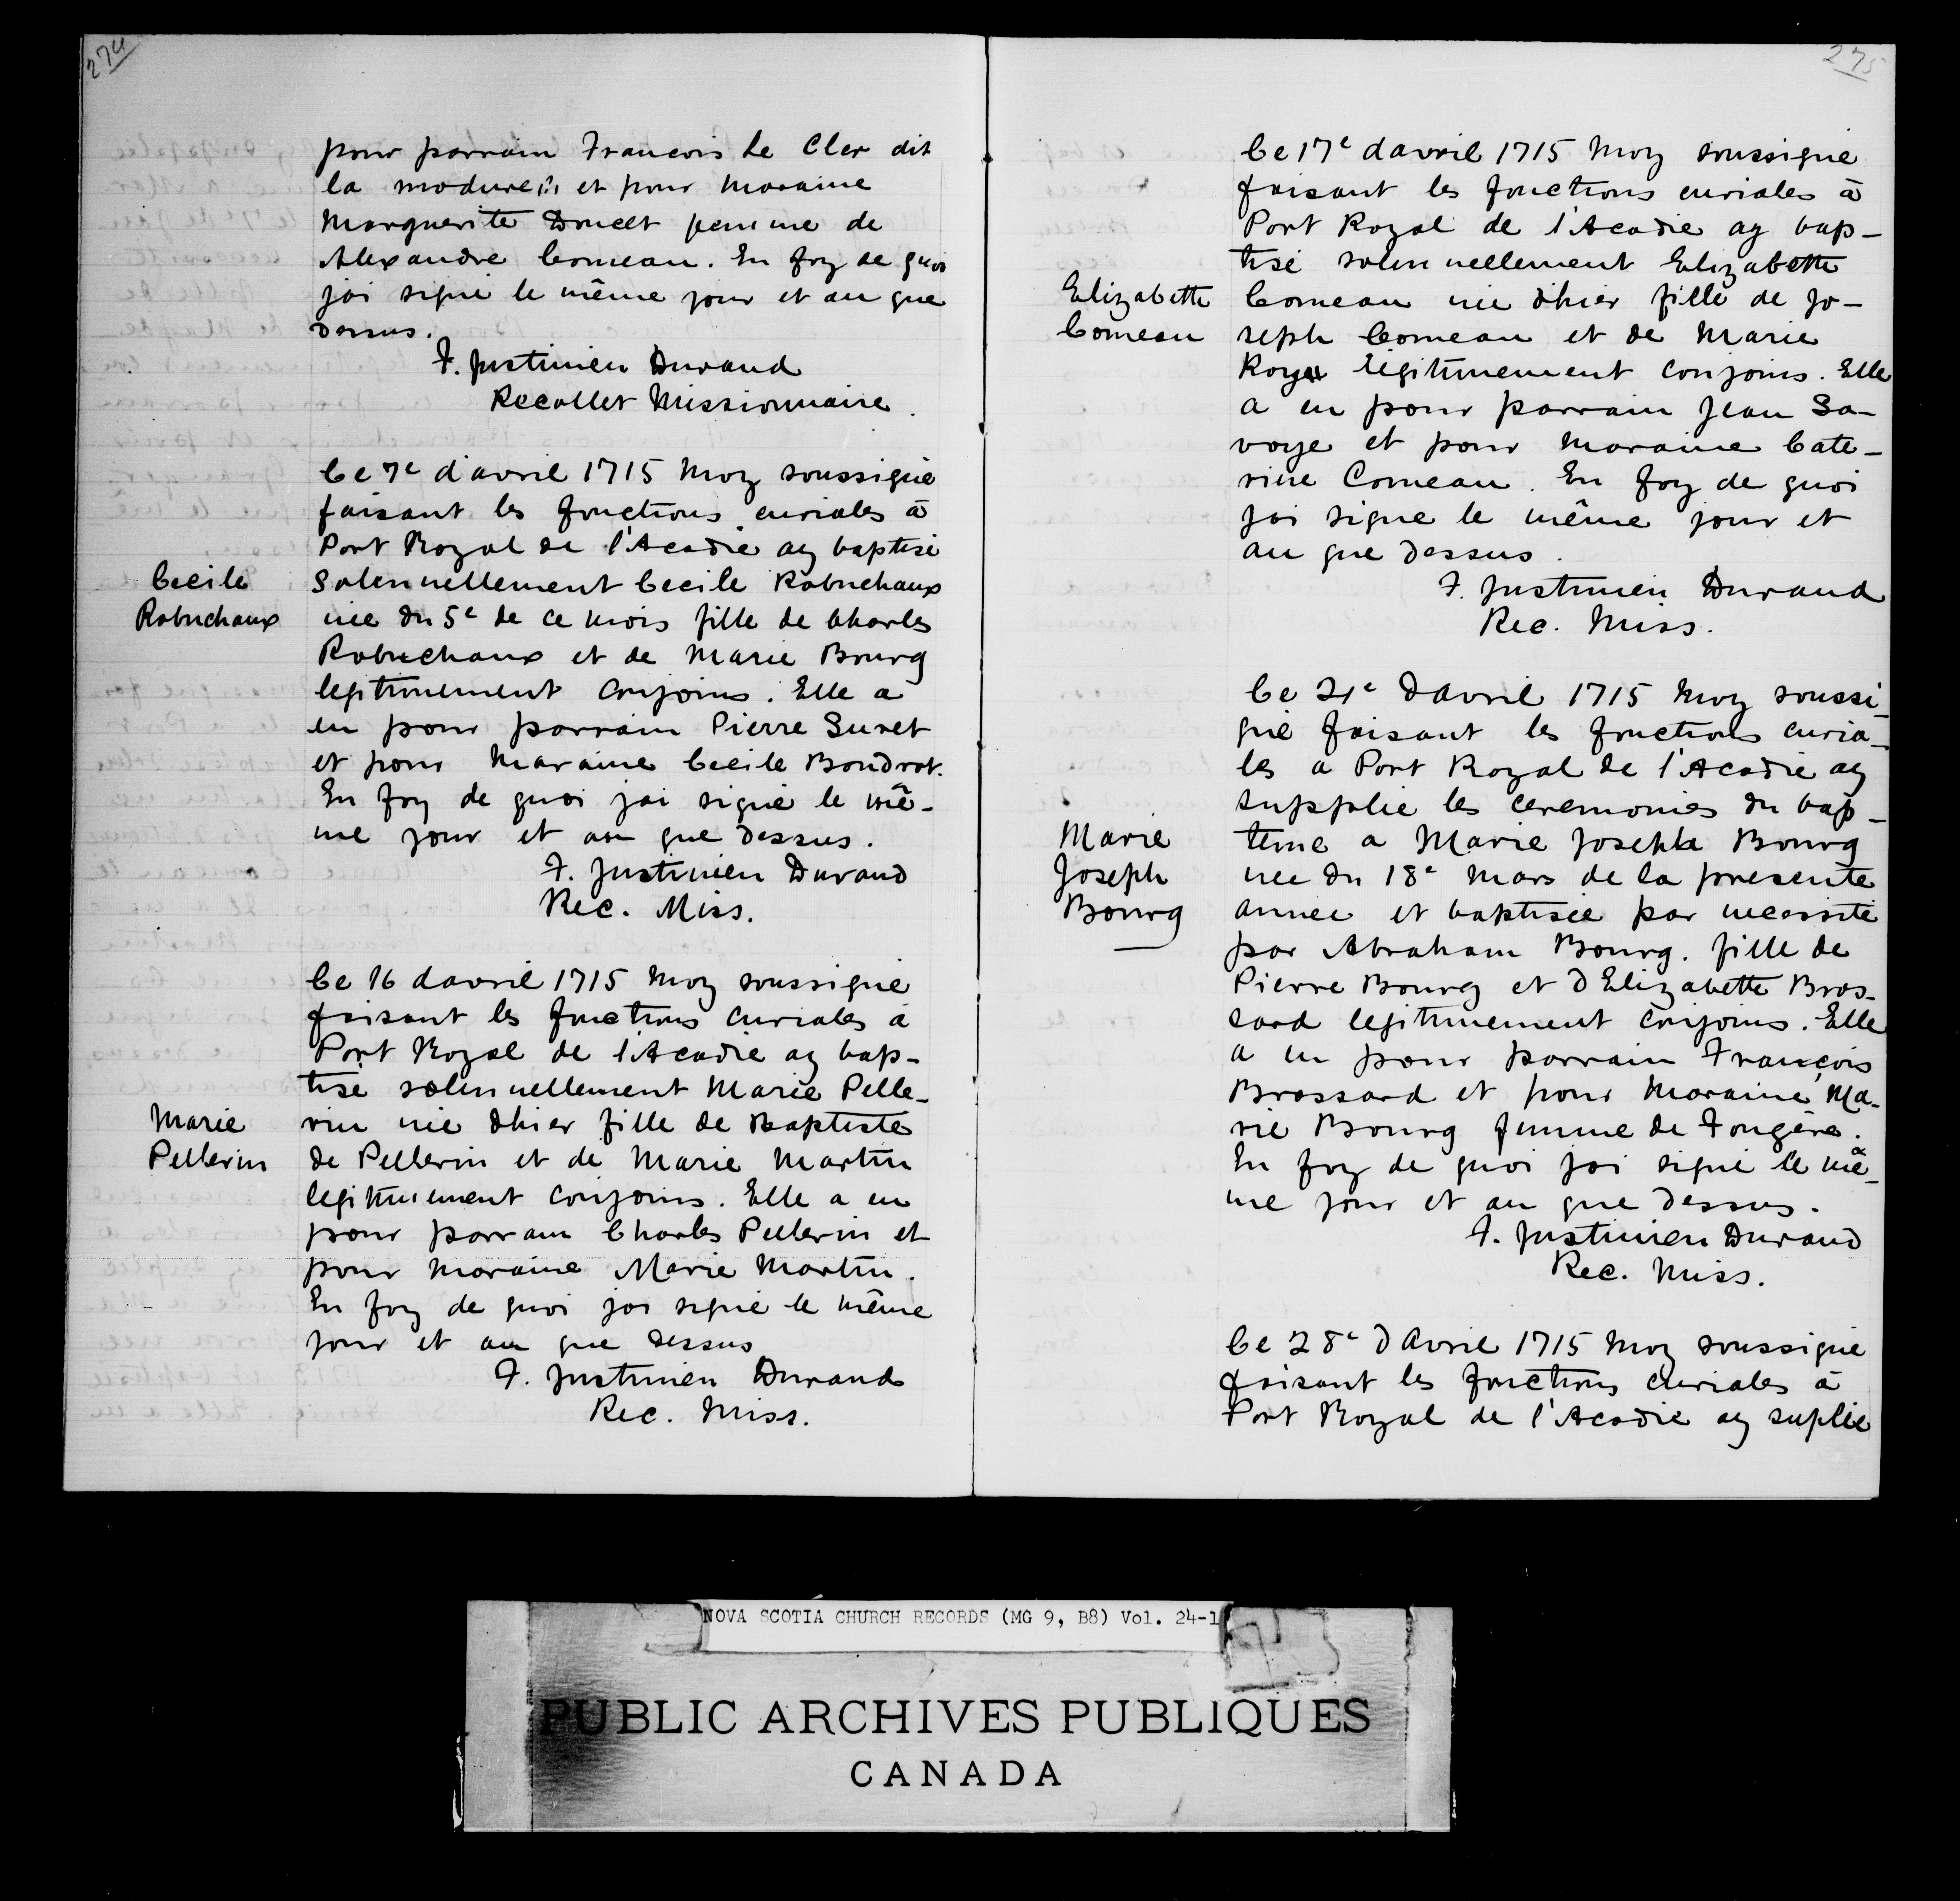 274
pour parrain Francois Le Cler dit
la et pour Maraine
Marguerite Doucet femme de
Alexandre Comeau. En foy de quoi
jai signé le même jour et an que
dessus.
F. Justinien Durand
Recollet Missionnaire.
Ce 7e d'avril 1715 Moy soussigné
faisant les fonctions curiales à
Port Royal de l'Acadie ay baptisé
Cecile
Robuchaux
Solennellement Cecile Robuchaux
née du 5e de ce mois fille de Charles
Robuchaux et de Marie Bourg
legitimement conjoins. Elle a
eu pour parrain Pierre Suret
et pour Maraine Cecile Boudrot.
En foy de quoi jai signé le mê-
me jour et an que dessus.
F. Justinien Durand
Rec. Miss.
Ce 16 davril 1715 Moy soussigné
faisant les fonctions curiales à
Port Royal de l'Acadie ay bap-
tisé solennellement Marie Pelle-
Marie
Pellerin
rin née dhier fille de Baptiste
de Pellerin et de Marie Martin
legitimement conjoins. Elle a eu
pour parrain Charles Pellerin et
pour Maraine Marie Martin.
En foy de quoi jai signé le même
jour et an que dessus
F. Justinien Durand
Rec. Miss.
275
Ce 17e davril 1715 Moy soussigné
faisant les fonctions curiales à
Port Royal de l'Acadie ay bap-
tisé solennellement Elizabette
Elizabette
Comeau
Comeau née dhier fille de Jo-
seph Comeau et de Marie
legitimement conjoins. Elle
a eu pour parrain Jean Sa-
voye et pour Maraine Cate-
rine Comeau. En foy de quoi
jai signe le même jour et
an que dessus.
F. Justinien Durand
Rec. Miss.
Ce 21e davril 1715 Moy soussi-
gné faisant les fonctions curia-
les a Port Royal de l'Acadie ay
supplié les ceremonies du bap-
Marie
Joseph
Bourg
teme a Marie Josephe Bourg
née du 18e Mars de la presente
année et baptisée par necessité
par Abraham Bourg. fille de
Pierre Bourg et d'Elizabette Bros-
sard legitimement conjoins. Elle
a eu pour parrain François
Brossard et pour Maraine Ma-
rie Bourg femme de Fougère.
En foy de quoi jai signé le mê-
me jour et an que dessus.
F. Justinien Durand
Rec. Miss.
Ce 28e d'Avril 1715 Moy soussigné
faisant les fonctions curiales à
Port Royal de l'Acadie ay suplié
NOVA SCOTIA CHURCH RECORDS (MG 9, B8) Vol. 24-1
PUBLIC ARCHIVES PUBLIQUES
CANADA